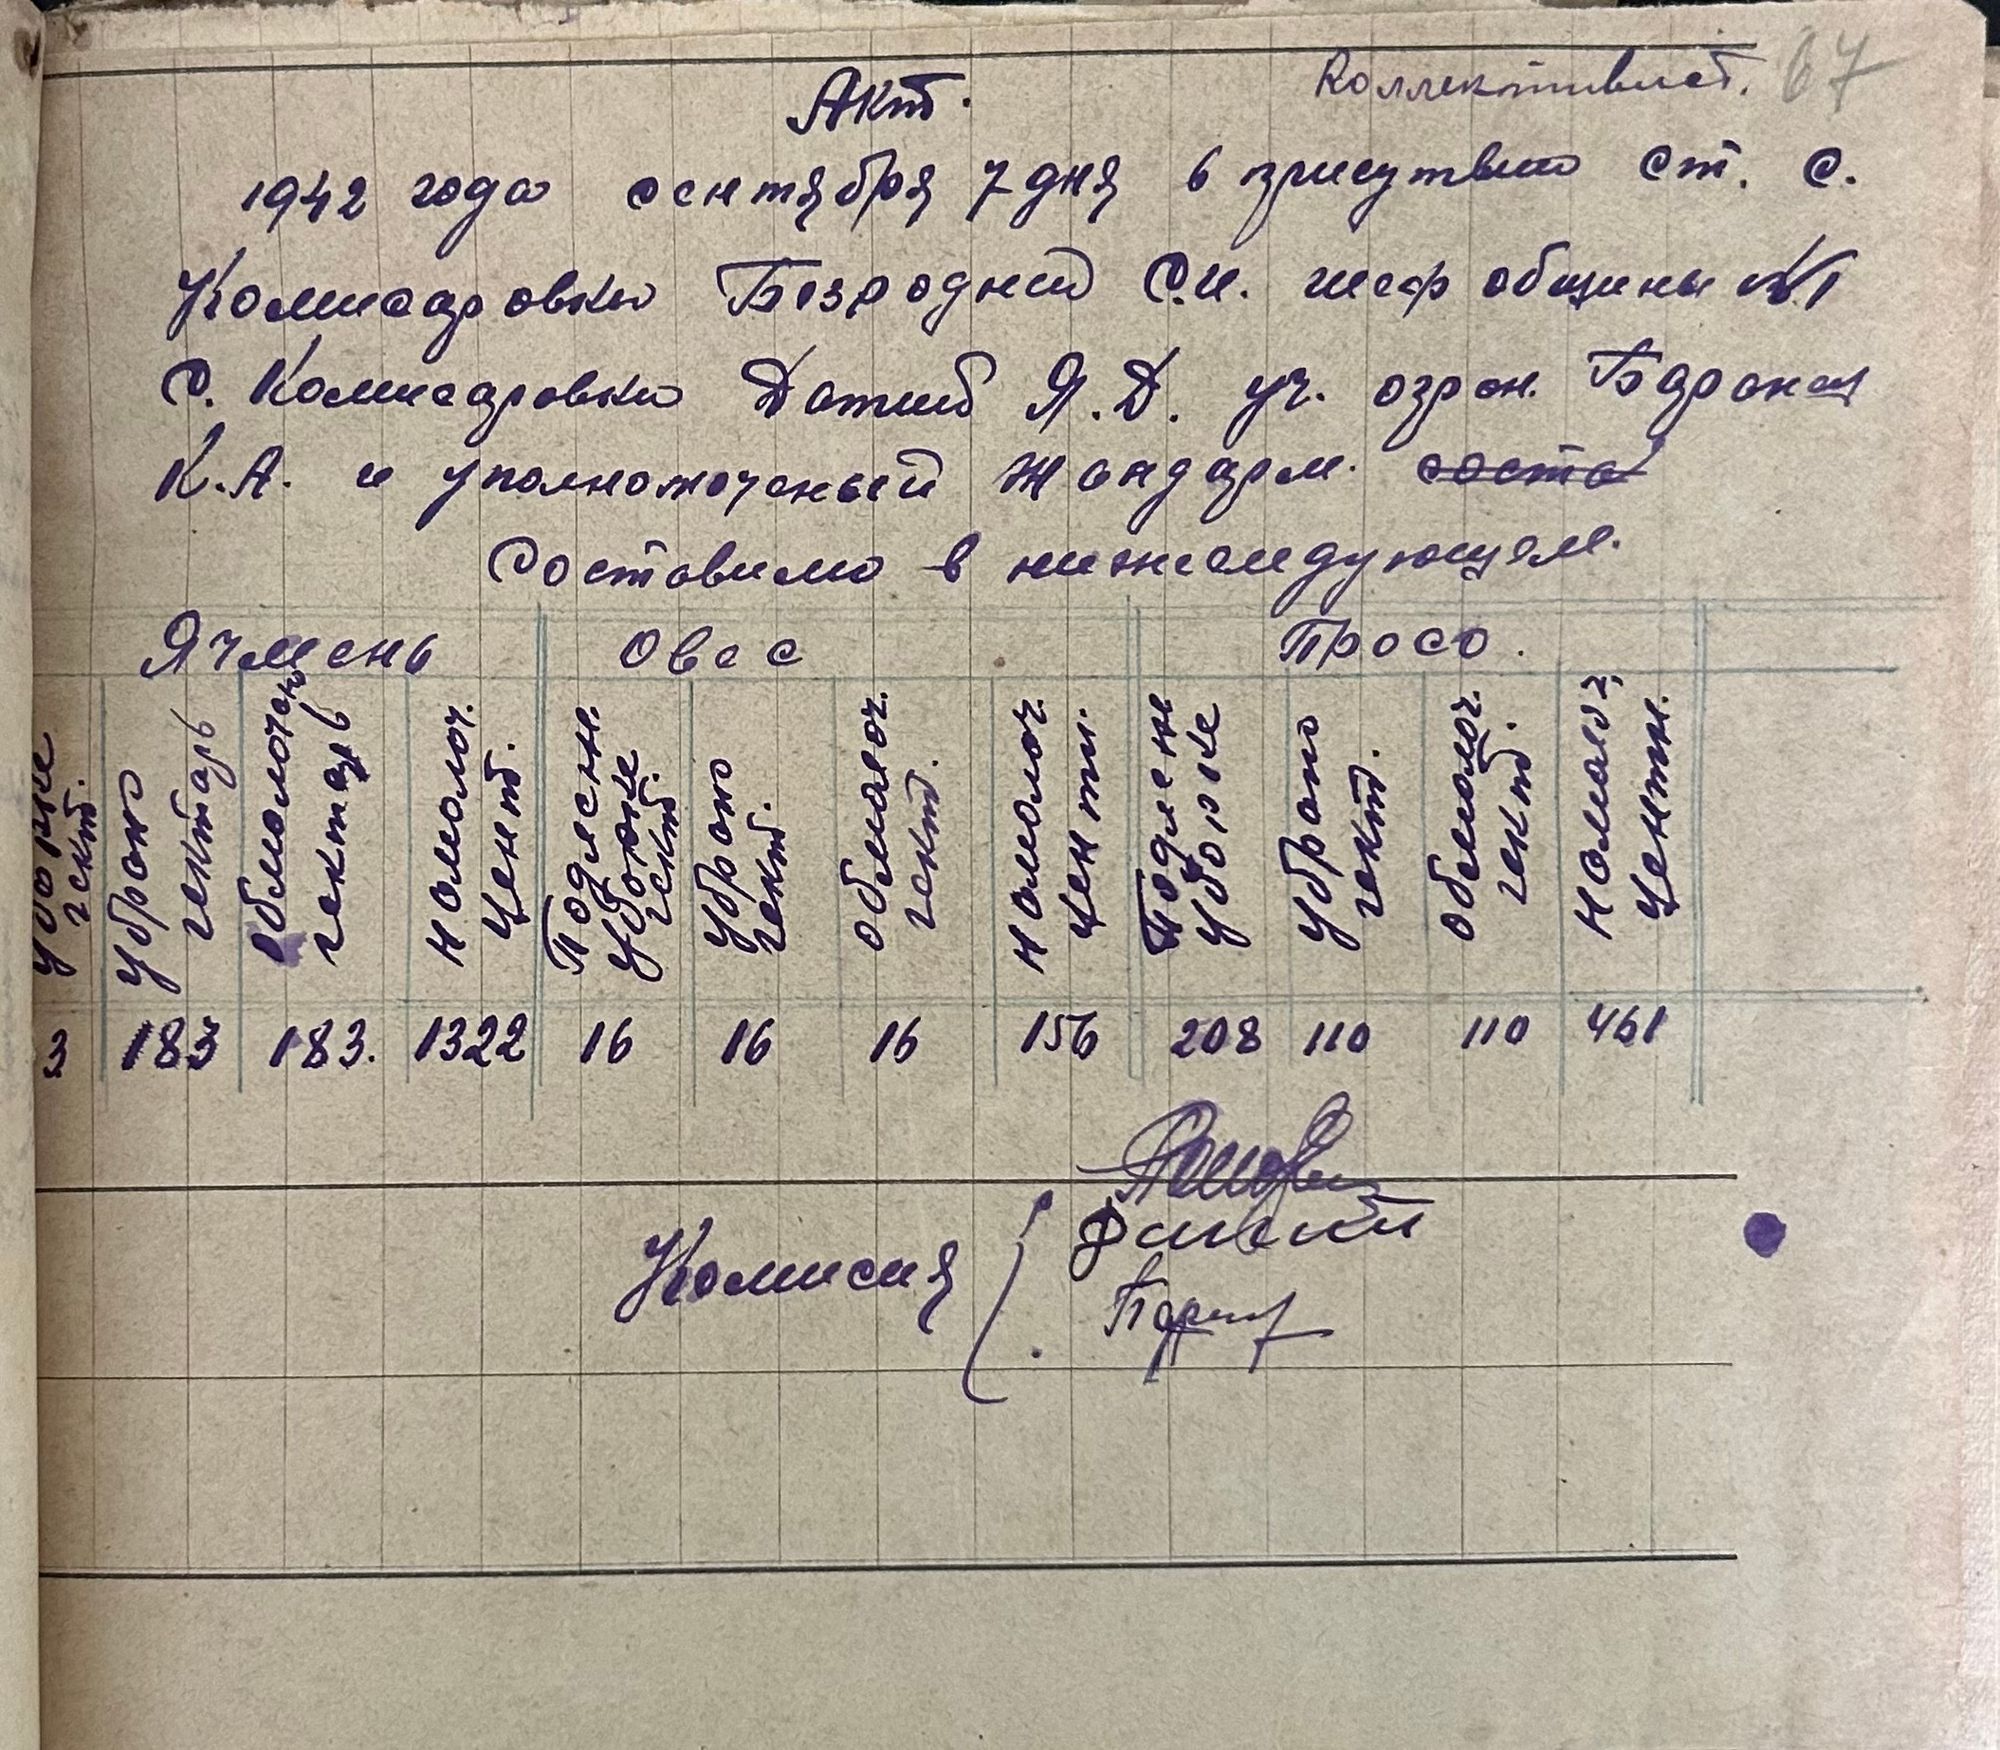 Коллективист. 67
Акт.
1942 года сентября 7 дня в присутвии ст. с.
Комисаровки Безродний С.И. шеф общины №1
с. Комисаровки Датий Я.Д. уч. агрон. Бароная
К.А. и уполномоченый жандарм. соста
составило в нижеследующем.
Ячмень Овес Просо.
уборке гект.
убрано гектарь
обмолочено гектарь
намолоч. цент.
Подлежн. уборке гект.
убрано гект.
обмолоч. гект.
намолоч. центн.
Подлежн уборке
убрано гект.
обмолоч. гект.
намолоч. центн.
3 183 183. 1322 16 16 16 156 208 110 110 461
Комисия